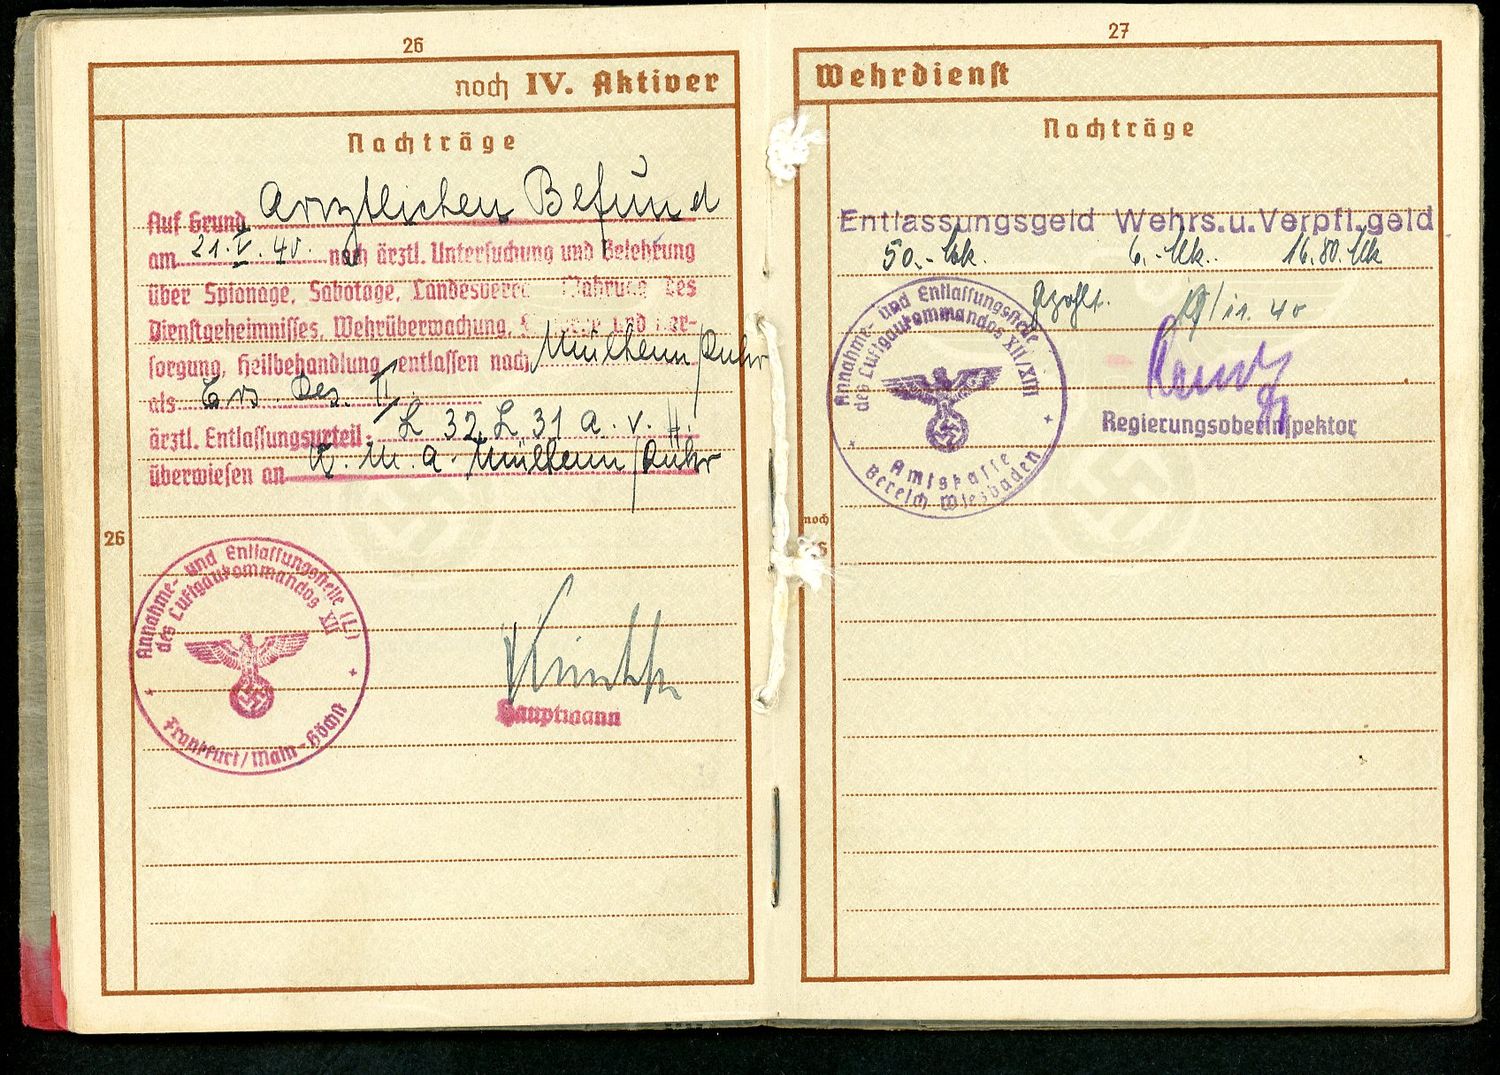 26
noch IV. Aktiver
Nachträge
Auf Grund Arztlichen Befund
am 21. V. 40. nach ärztl. Untersuchung und Belehrung
über Spionage, Sabotage, Landesverrat, Wahrung des
Dienstgeheimnisses, Wehrüberwachung, und Ver-
sorgung, Heilbehandlung entlassen nach Mülheim/Ruhr
als Ers. Res. II
ärztl. Entlassungsurteil: L 32 L 31 a. v. H.
überwiesen an W. M. A. Mülheim/Ruhr
26
Annahme- und Entlassungsstelle (L)
des Luftgaukommandos XII
Frankfurt/Main-Höchst
Hauptmann
27
Wehrdienst
Nachträge
Entlassungsgeld Wehrs.u.Verpfl.geld
50.- Mk. 6.- Mk. 16.80 Mk
gezahlt. 40
Annahme- und Entlassungsstelle
des Luftgaukommandos XII/XIII
Amtskasse
Bereich Wiesbaden
Regierungsoberinspektor
noch
26